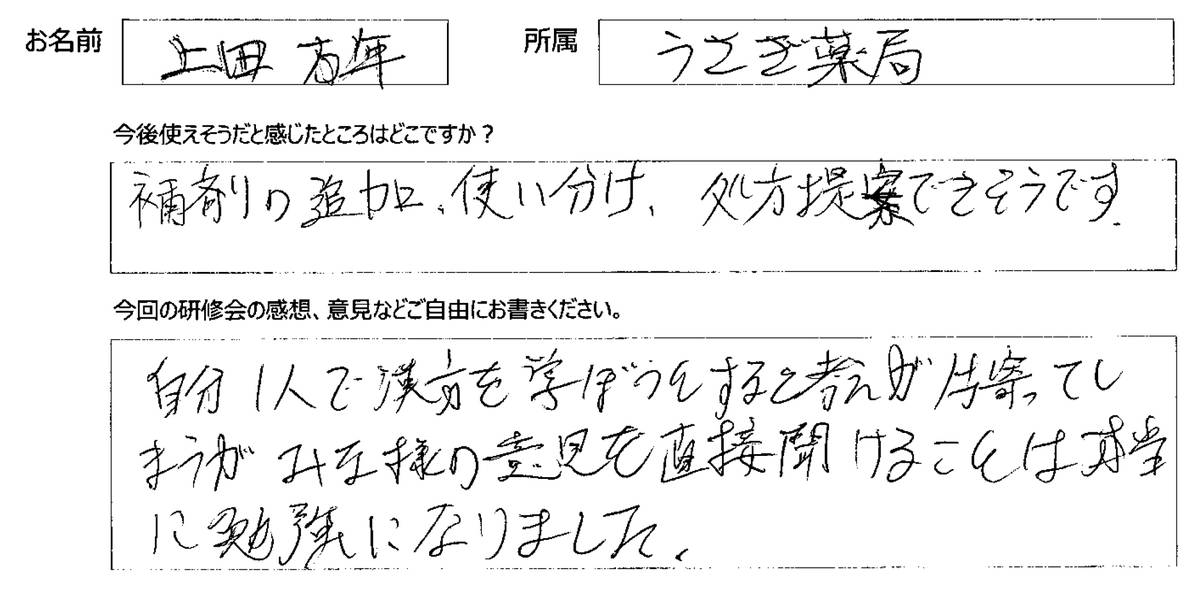 お名前 上田 方年 所属 うさぎ薬局
今後使えそうだと感じたところはどこですか？
補剤の追加、使い分け、処方提案できそうです.
今回の研修会の感想、意見などご自由にお書きください。
自分1人で漢方を学ぼうとすると考えが片寄ってし
まうが みな様の意見を直接聞けることは本当
に勉強になりました.